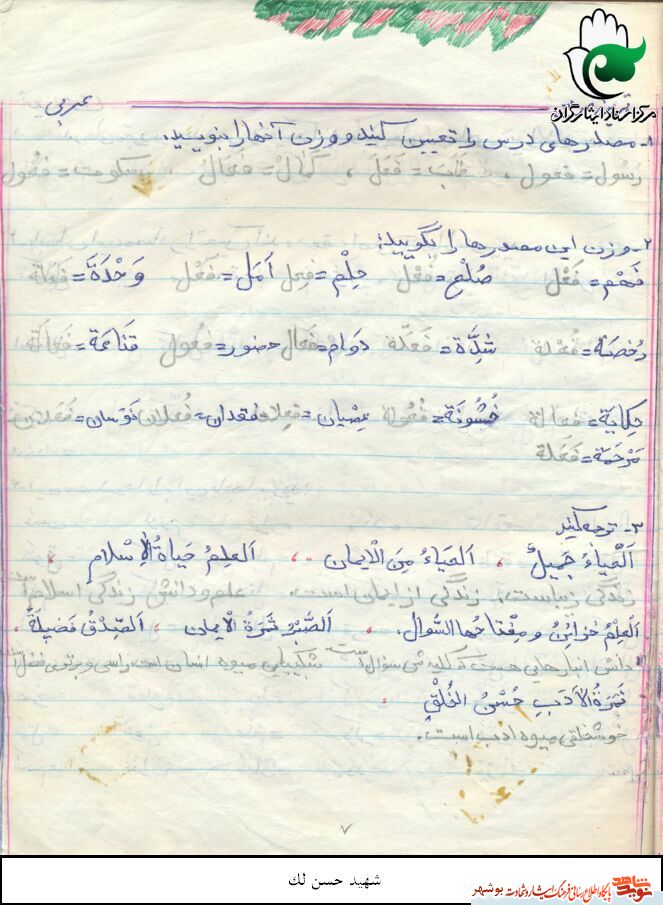 مرکز اسناد ایثارگران
عربی
۱- مصدرهای درس را تعیین کنید و وزن آنها را بنویسید.
رسول = فعول ، طلب = فَعَل ، کمال = فَعال ، سکوت = فُعُول
۲- وزن این مصدرها را بگویید:
فَهْم = فَعْل صُلْح = فُعْل حِلْم = فِعل اَمَل = فَعْل وَحْدَة = فَعْلَة
رُخصة = فُعْلة شِدَّة = فَعَلّة دَوام = فَعال حضور = فُعُول قناعَة = فَعالَة
حِکایَة = فعالة خُشُونَة = فُعُولة عِصْیان = فِعلان فُقدان = فُعلان نَوَسان = فَعَلان
مَرْحَمَة = فَعَلَة
۳- ترجمه کنید
اَلْحَیاءُ جَمیلٌ ، اَلحَیاءُ مِنَ الْایمان ، اَلعِلمُ حَیاةُ الْاِسْلامِ
زندگی زیباست، زندگی از ایمان است. علم و دانش زندگی اسلام است
اَلْعِلْمُ خَزائِنُ و مِفْتاحُها السُّوالُ. اَلصَّبْرُ ثَمَرَةُ الْایمان ، اَلصِّدْقُ فَضیلَةٌ
دانش انبارهایی هست که کلیدش سؤال است شکیبایی میوه انسان است، راستی و برتری فضل است
ثَمَرَةُ الْاَدَبِ حُسْنُ الخُلْقِ
خوشخلقی میوه ادب است.
۷
شهید حسن لك
نوید شاهد پایگاه اطلاع رسانی فرهنگ ایثار و شهادت بوشهر